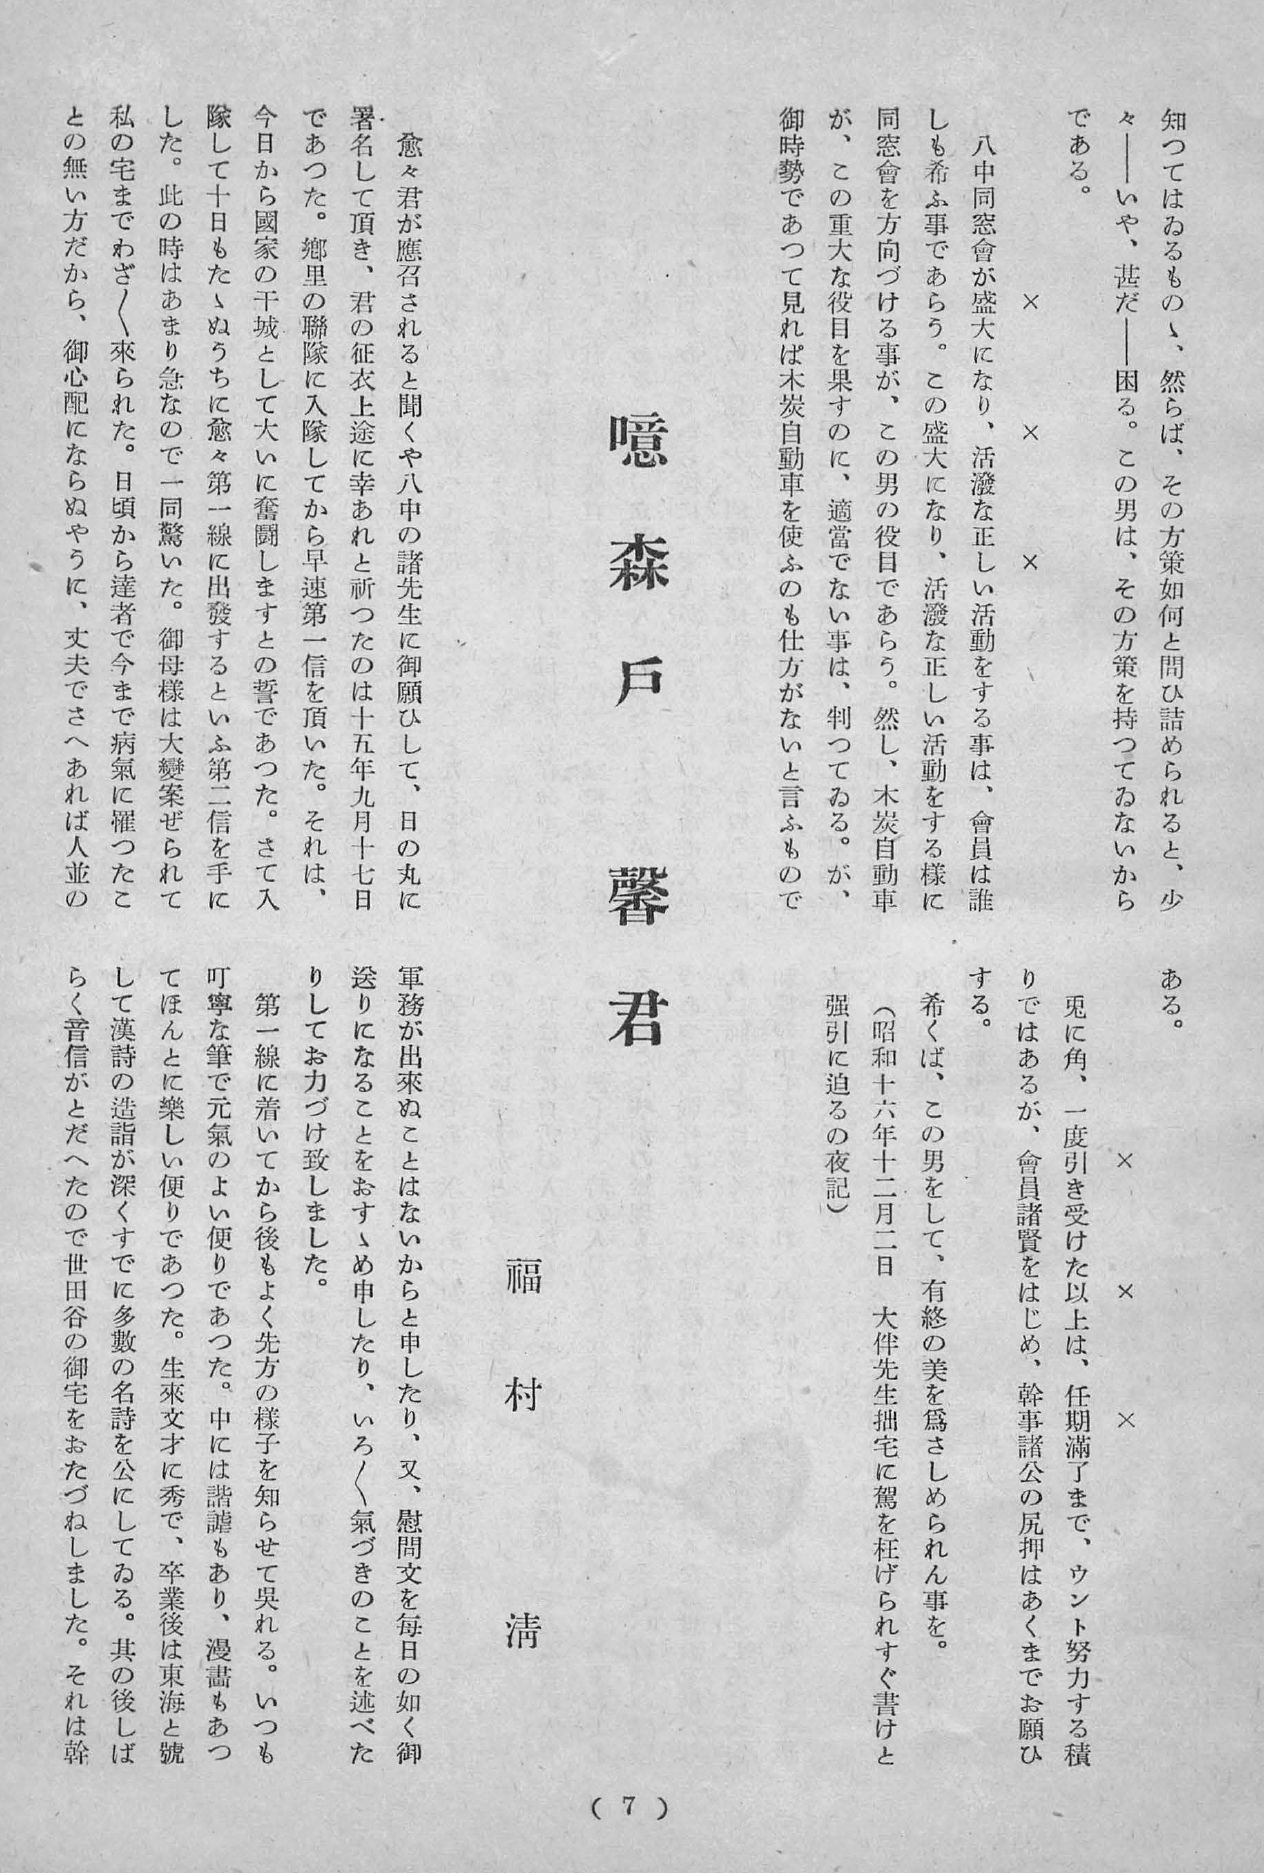 知つてはゐるものゝ、然らば、その方策如何と問ひ詰められると、少
々――いや、甚だ――困る。この男は、その方策を持つてゐないから
である。
×　×　×
八中同窓會が盛大になり、活潑な正しい活動をする事は、會員は誰
しも希ふ事であらう。この盛大になり、活潑な正しい活動をする樣に
同窓會を方向づける事が、この男の役目であらう。然し、木炭自動車
が、この重大な役目を果すのに、適當でない事は、判つてゐる。が、
御時勢であつて見れば木炭自動車を使ふのも仕方がないと言ふもので
ある。
×　×　×
兎に角、一度引き受けた以上は、任期滿了まで、ウント努力する積
りではあるが、會員諸賢をはじめ、幹事諸公の尻押はあくまでお願ひ
する。
希くば、この男をして、有終の美を爲さしめられん事を。
（昭和十六年十二月二日　大伴先生拙宅に駕を枉げられすぐ書けと
强引に迫るの夜記）
噫森戶馨君
福村淸
愈々君が應召されると聞くや八中の諸先生に御願ひして、日の丸に
署名して頂き、君の征衣上途に幸あれと祈つたのは十五年九月十七日
であつた。鄕里の聯隊に入隊してから早速第一信を頂いた。それは、
今日から國家の干城として大いに奮鬪しますとの誓であつた。さて入
隊して十日もたゝぬうちに愈々第一線に出發するといふ第二信を手に
した。此の時はあまり急なので一同驚いた。御母樣は大變案ぜられて
私の宅までわざ〱來られた。日頃から達者で今まで病氣に罹つたこ
との無い方だから、御心配にならぬやうに、丈夫でさへあれば人並の
軍務が出來ぬことはないからと申したり、又、慰問文を每日の如く御
送りになることをおすゝめ申したり、いろ〱氣づきのことを述べた
りしてお力づけ致しました。
第一線に着いてから後もよく先方の樣子を知らせて吳れる。いつも
叮寧な筆で元氣のよい便りであつた。中には諧謔もあり、漫畵もあつ
てほんとに樂しい便りであつた。生來文才に秀で、卒業後は東海と號
して漢詩の造詣が深くすでに多數の名詩を公にしてゐる。其の後しば
らく音信がとだへたので世田谷の御宅をおたづねしました。それは幹
( 7 )